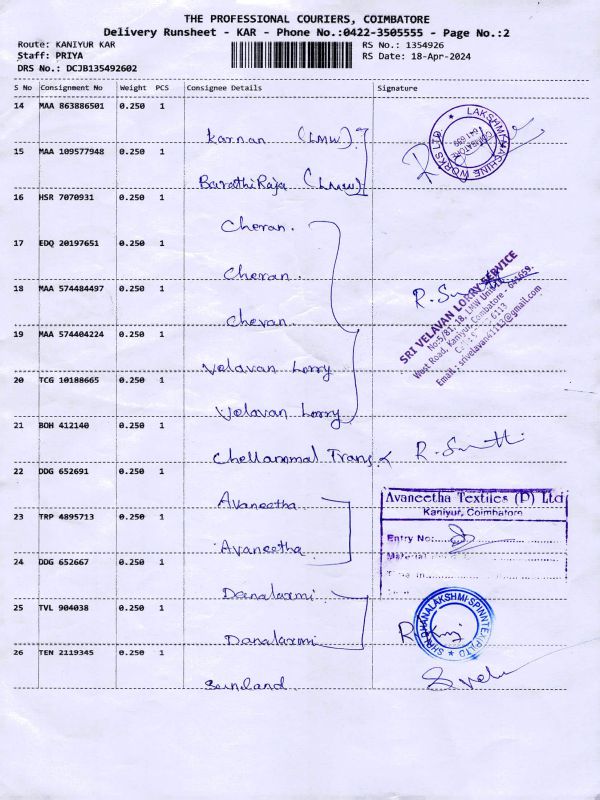 THE PROFESSIONAL COURIERS, COIMBATORE
Delivery Runsheet - KAR - Phone No.:0422-3505555 - Page No.:2
Route: KANIYUR KAR RS No.: 1354926
Staff: PRIYA RS Date: 18-Apr-2024
DRS No.: DCJB135492602
S No Consignment No Weight PCS Consignee Details Signature
14 MAA 863886501 0.250 1
Karnan (LMW)
LAKSHMI MACHINE WORKS LTD
COIMBATORE 641 659
15 MAA 109577948 0.250 1
BarathiRaja (LMW)
16 HSR 7070931 0.250 1
Cheran.
17 EDQ 20197651 0.250 1
Cheran.
18 MAA 574484497 0.250 1
Cheran
SRI VELAVAN LORRY SERVICE
No:5/81, 18, LMW Unit
West Road, Kaniyur, Coimbatore - 641659.
6113
Email: srivelavan41113@gmail.com
19 MAA 574404224 0.250 1
Velavan Lorry
20 TCG 10188665 0.250 1
Velavan Lorry
21 BOH 412140 0.250 1
Chellammal Trans
22 DDG 652691 0.250 1
Avaneetha
Avaneetha Textiles (P) Ltd
Kaniyur, Coimbatore
23 TRP 4895713 0.250 1
Entry No:
Avaneetha
24 DDG 652667 0.250 1
Danalaxmi
25 TVL 904038 0.250 1
Danalaxmi
SHRI DHANALAKSHMI SPINNTEX (P) LTD
26 TEN 2119345 0.250 1
Suniland